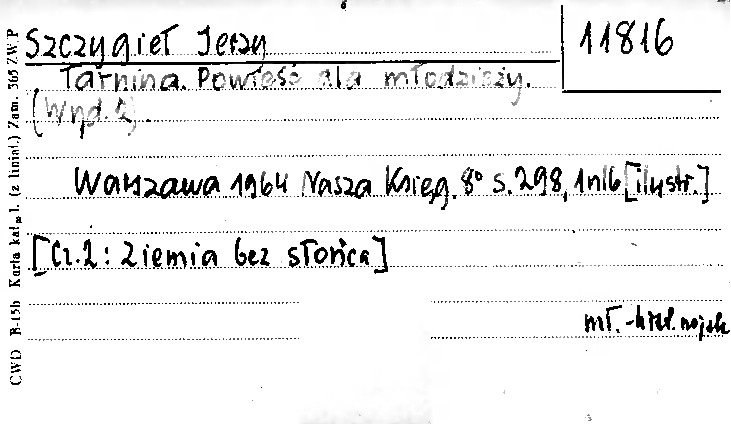 Szczygieł Jerzy
11816
Tarnina. Powieść dla młodzieży.
(Wyd. 2).
Warszawa 1964 Nasza Księg. 8° s. 298, 1nlb [ilustr.]
[Cz. 2: Ziemia bez słońca]
mł.
CWD B-15b Karta kat. (z liniat.) Zam. 365 ZW.P